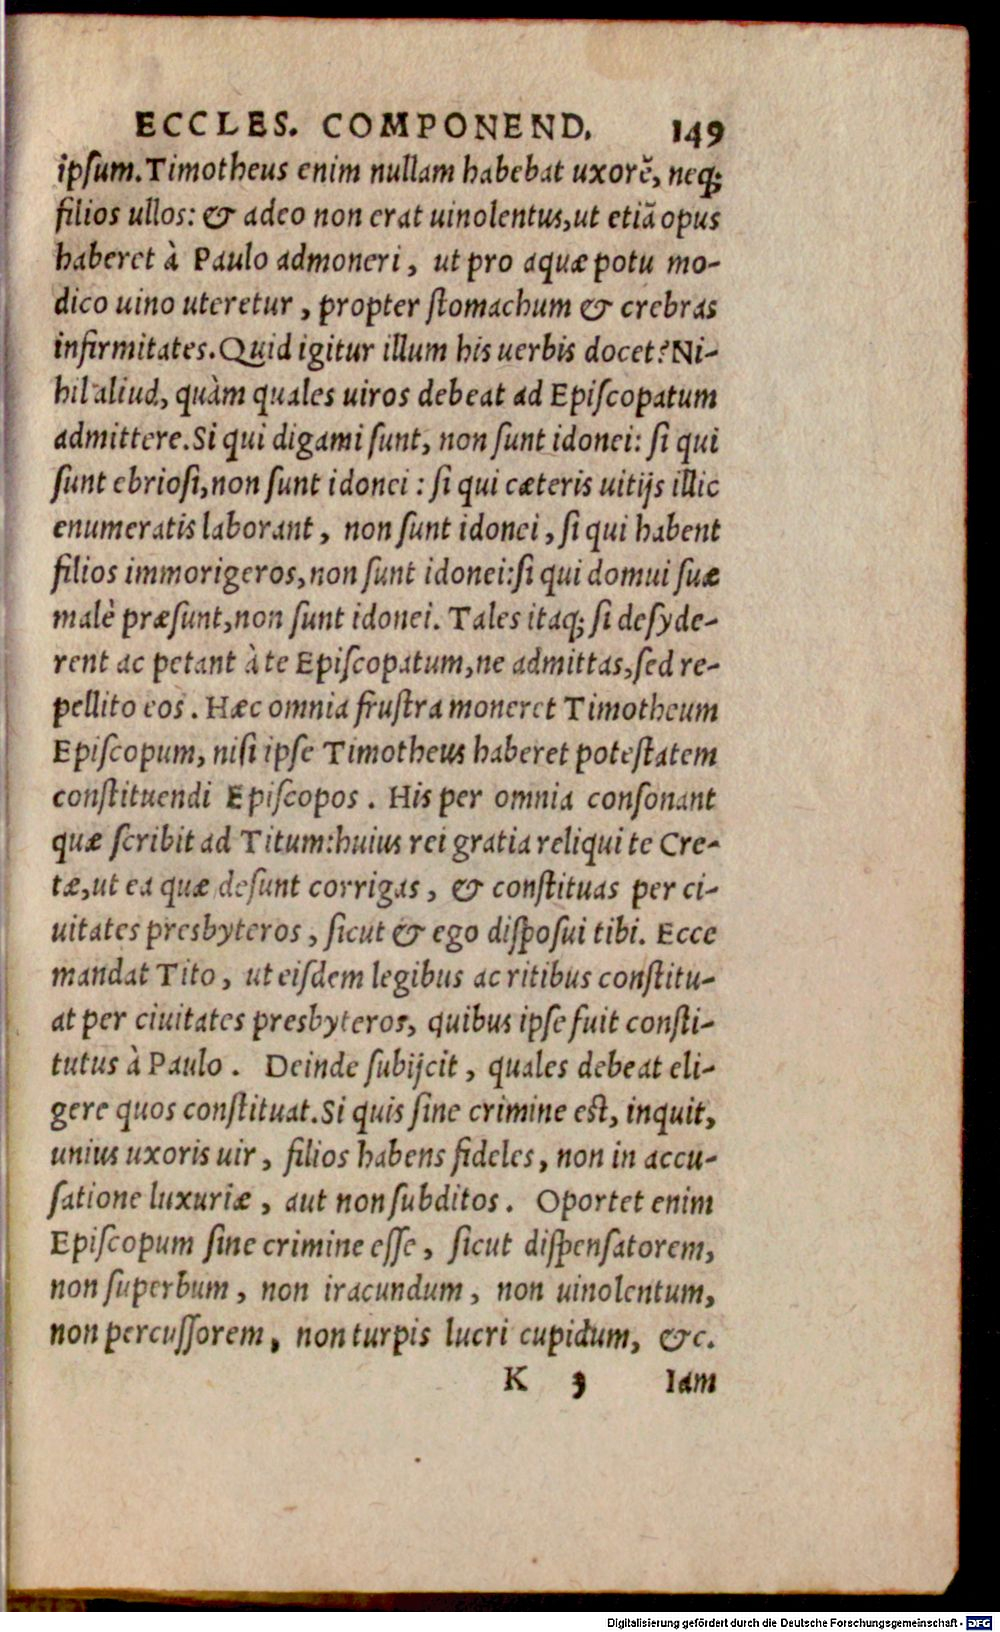 ECCLES. COMPONEND. 149
ipsum. Timotheus enim nullam habebat uxorē, neq;
filios ullos: & adeo non erat uinolentus, ut etiā opus
haberet à Paulo admoneri, ut pro aquæ potu mo-
dico uino uteretur, propter stomachum & crebras
infirmitates. Quid igitur illum his uerbis docet? Ni-
hil aliud, quàm quales uiros debeat ad Episcopatum
admittere. Si qui digami sunt, non sunt idonei: si qui
sunt ebriosi, non sunt idonei: si qui cæteris uitijs illic
enumeratis laborant, non sunt idonei, si qui habent
filios immorigeros, non sunt idonei: si qui domui suæ
malè præsunt, non sunt idonei. Tales itaq; si desyde-
rent ac petant à te Episcopatum, ne admittas, sed re-
pellito eos. Hæc omnia frustra moneret Timotheum
Episcopum, nisi ipse Timotheus haberet potestatem
constituendi Episcopos. His per omnia consonant
quæ scribit ad Titum: huius rei gratia reliqui te Cre-
tæ, ut ea quæ desunt corrigas, & constituas per ci-
uitates presbyteros, sicut & ego disposui tibi. Ecce
mandat Tito, ut eisdem legibus ac ritibus constitu-
at per ciuitates presbyteros, quibus ipse fuit consti-
tutus à Paulo. Deinde subijcit, quales debeat eli-
gere quos constituat. Si quis sine crimine est, inquit,
unius uxoris uir, filios habens fideles, non in accu-
satione luxuriæ, aut non subditos. Oportet enim
Episcopum sine crimine esse, sicut dispensatorem,
non superbum, non iracundum, non uinolentum,
non percussorem, non turpis lucri cupidum, &c.
K 3 Iam
Digitalisierung gefördert durch die Deutsche Forschungsgemeinschaft - DFG